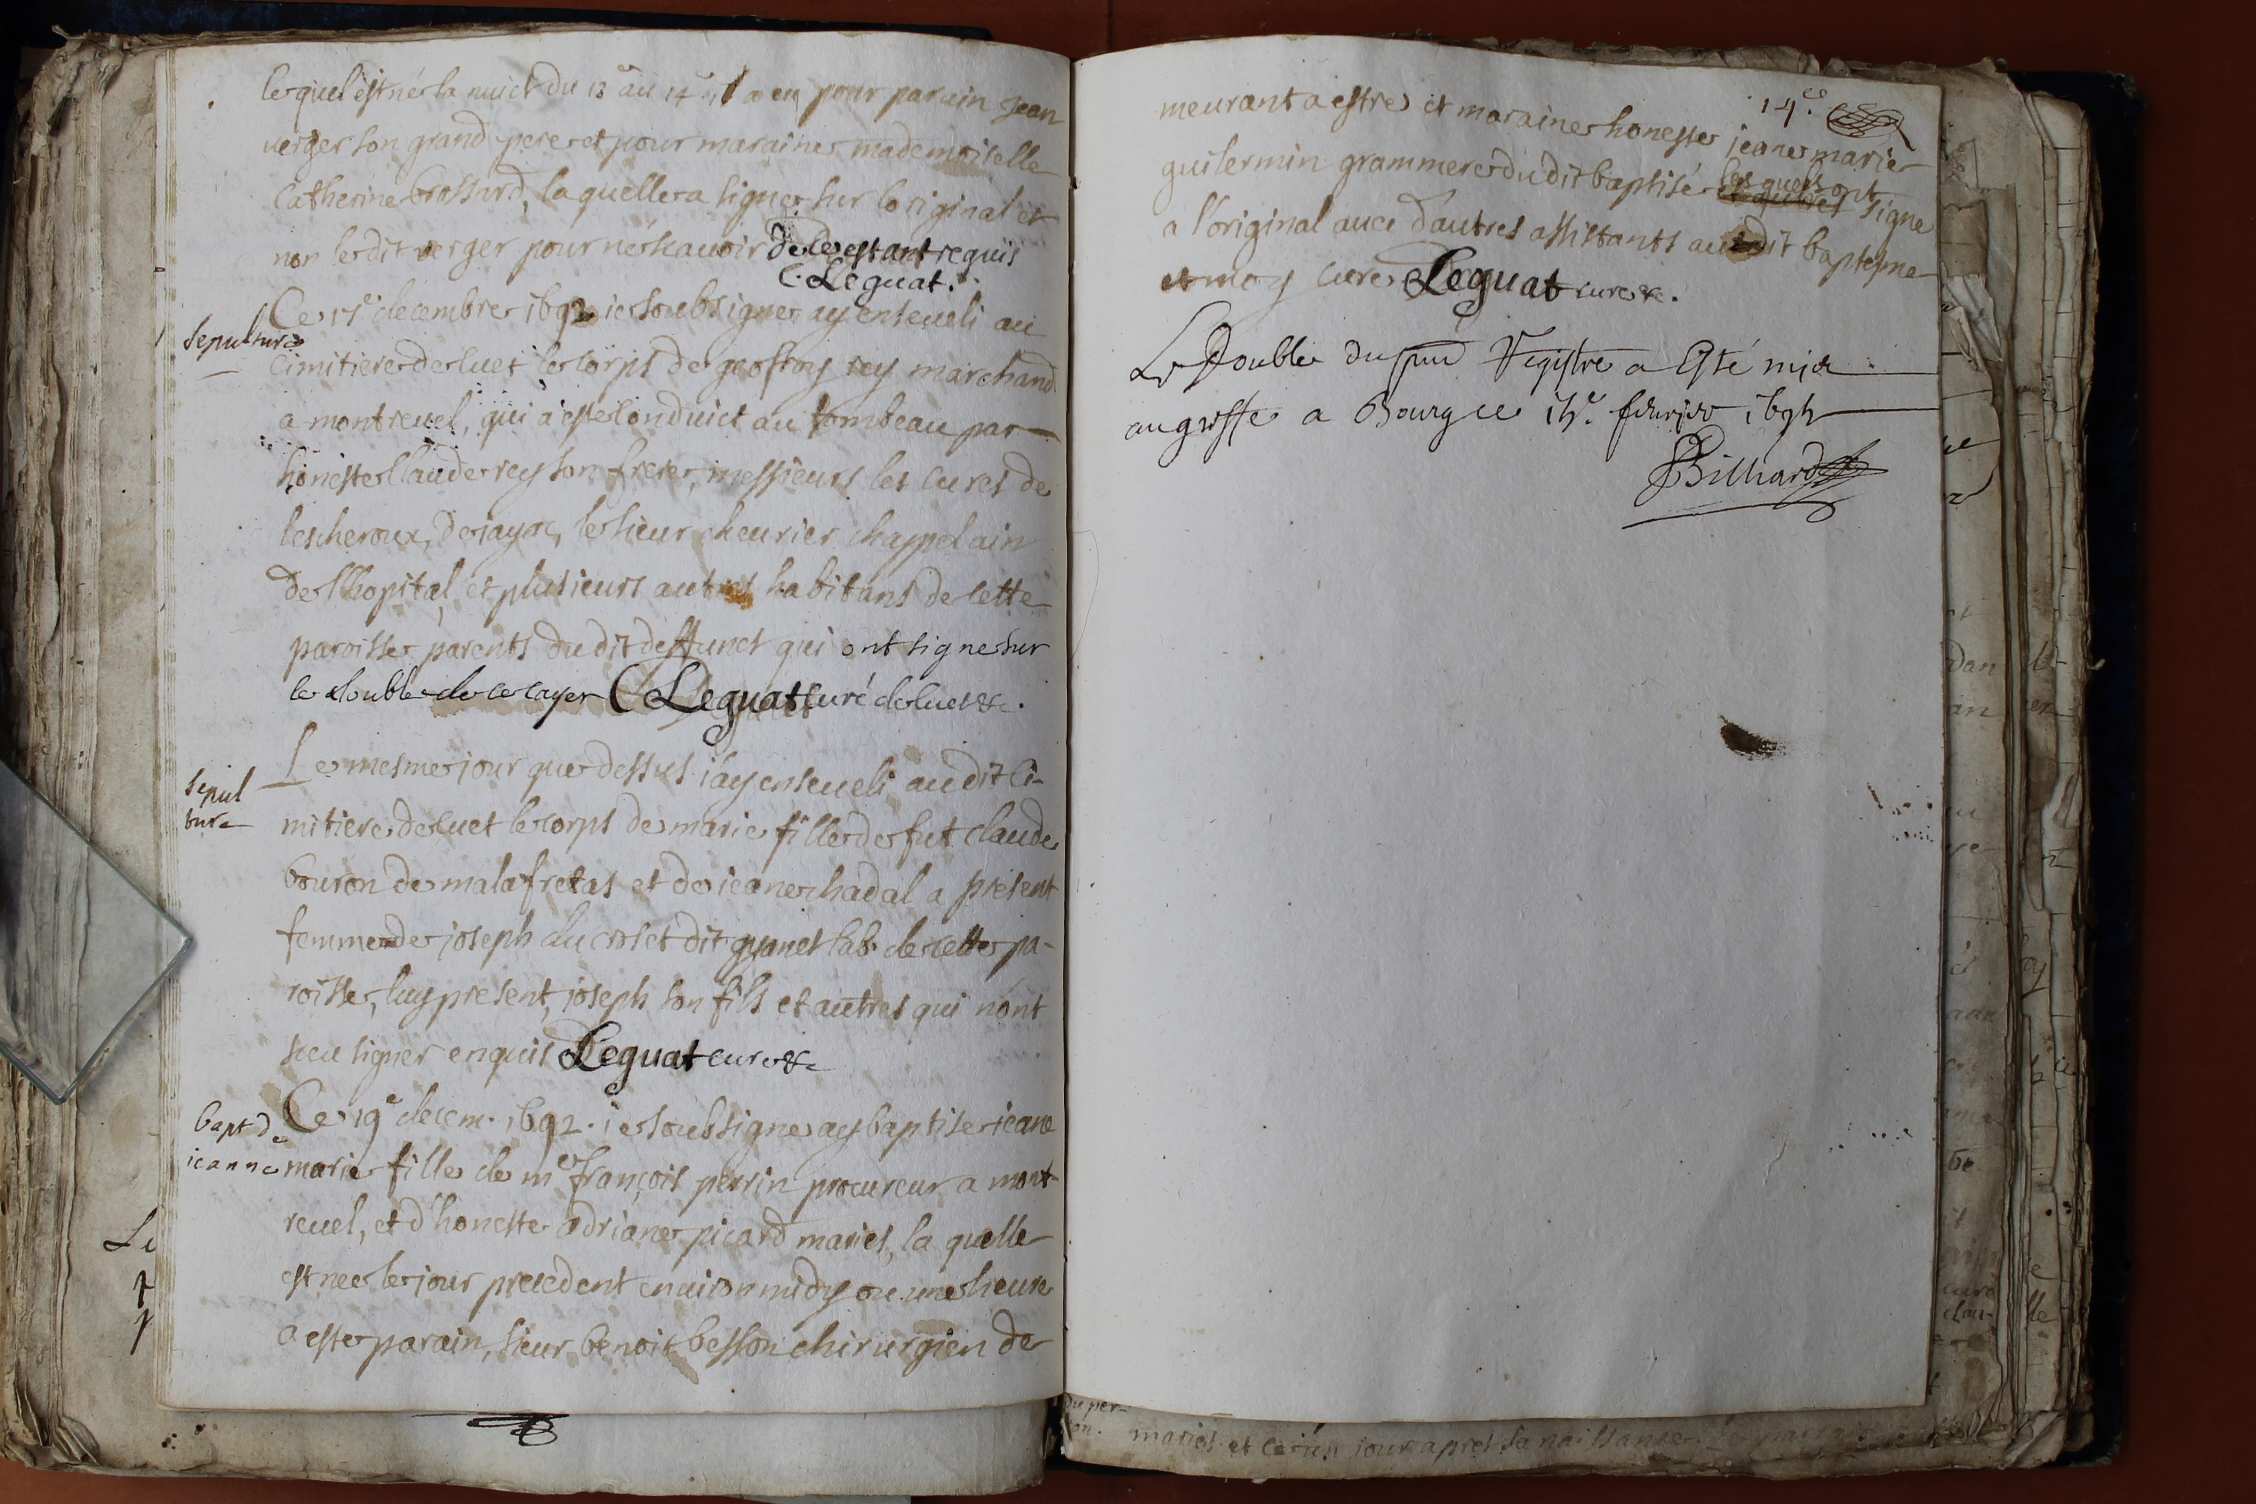 lequel est né la nuict du 13e au 14e il a eu pour parain jean
verger son grand pere et pour maraine mademoiselle
Catherine brossard, la quelle a signe sur loriginal et
non le dit verger pour ne scavoir de ce estant requis
C. Leguat.
sepulture
Ce 17e decembre 1692 ie soubsigne ay enseveli au
cimitiere de cuet le corps de geofroy rey marchand
a montrevel, qui a esté conduict au tombeau par
honeste Claude rey son frere, messieurs les cures de
lescheroux, de jayac, le sieur chevrier chappelain
de lhopital et plusieurs autres habitans de cette
paroisse, parents du dit deffunct qui ont signe sur
le double de ce cayer C Leguat curé de cuet &c.
sepul
ture
Le mesme jour que dessus i'ay enseveli au dit ci-
mitiere de cuet le corps de marie fille de fut claude
bouron de malafretas et de ieane chadal a present
femme de joseph du crest dit guanet hab. de cette pa-
roisse, luy present, joseph son fils et autres qui n'ont
sceu signer enquis C Leguat cure &c
bapt de
ieanne
Ce 19e decem. 1692. ie soubsigne ay baptise ieane
marie fille de me françois perrin procureur a mont-
revel, et d'honeste adriane picard mariés, la quelle
est nee le jour precedent environ midy ou une heure
a esté parain, sieur benoit besson chirurgien de
14e
meurant a estre et maraine honeste jeane marie
guilermin grammere du dit baptisé lesquels ont signe
a l'original avec d'autres assistants au dit baptesme
et moy cure C Leguat cure &c.
Le Double du pnt Registre a Esté mis
au greffe a Bourg ce 15e fevrier 1695
Billiard
mariés et ce un jour apres sa naissance